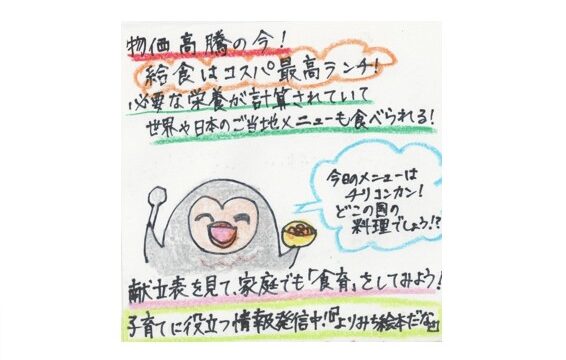 物価高騰の今!
給食はコスパ最高ランチ!
必要な栄養が計算されていて
世界や日本のご当地メニューも食べられる!
今日のメニューは
チリコンカン!
どこの国の
料理でしょう!?
献立表を見て、家庭でも「食育」をしてみよう!
子育てに役立つ情報発信中!『よりみち絵本だな』